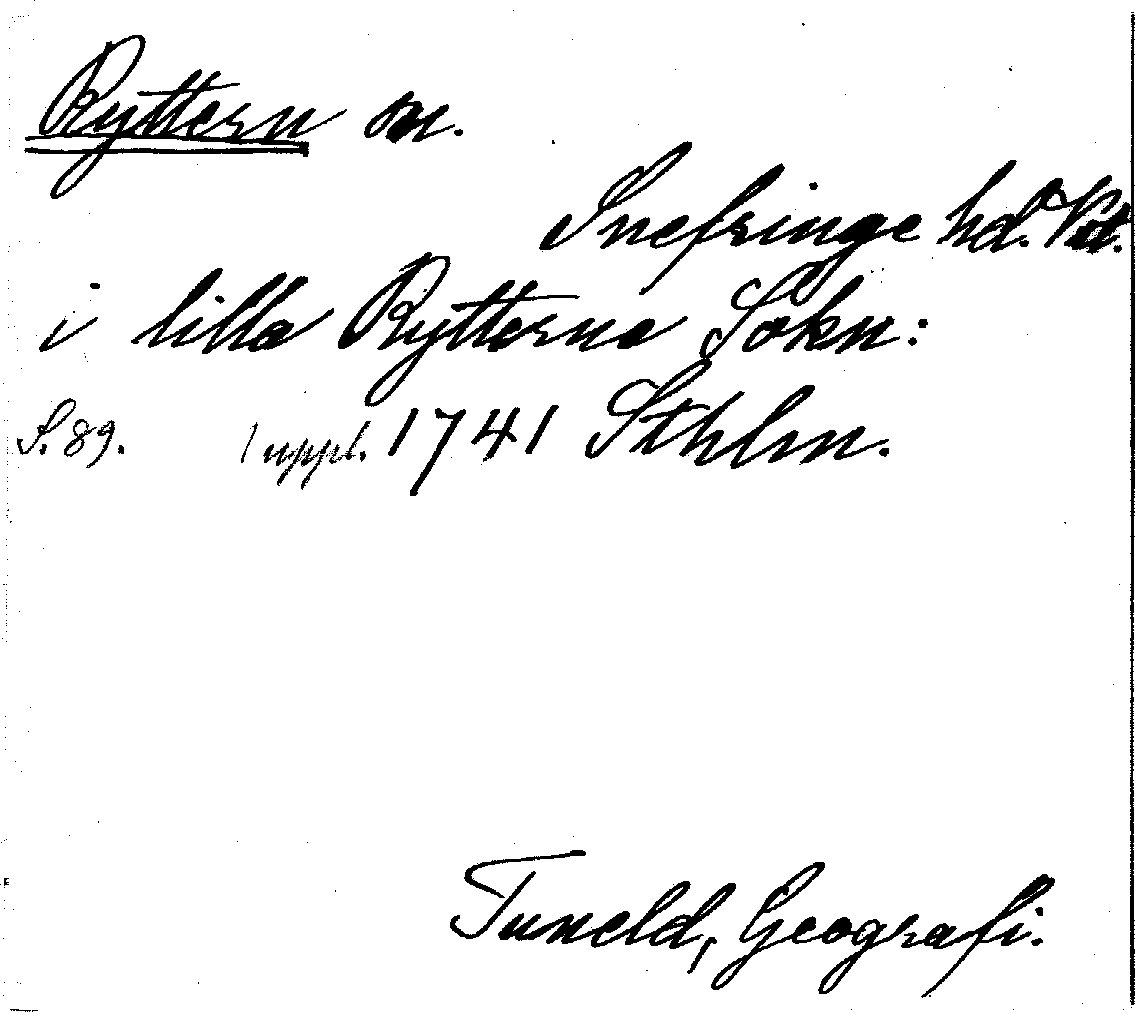 Ryttern sn.
Snefringe hd. Vstm.
i lilla Rytterne Sokn:
S. 89. 1 uppl. 1741 Sthlm.
Tuneld, Geografi.